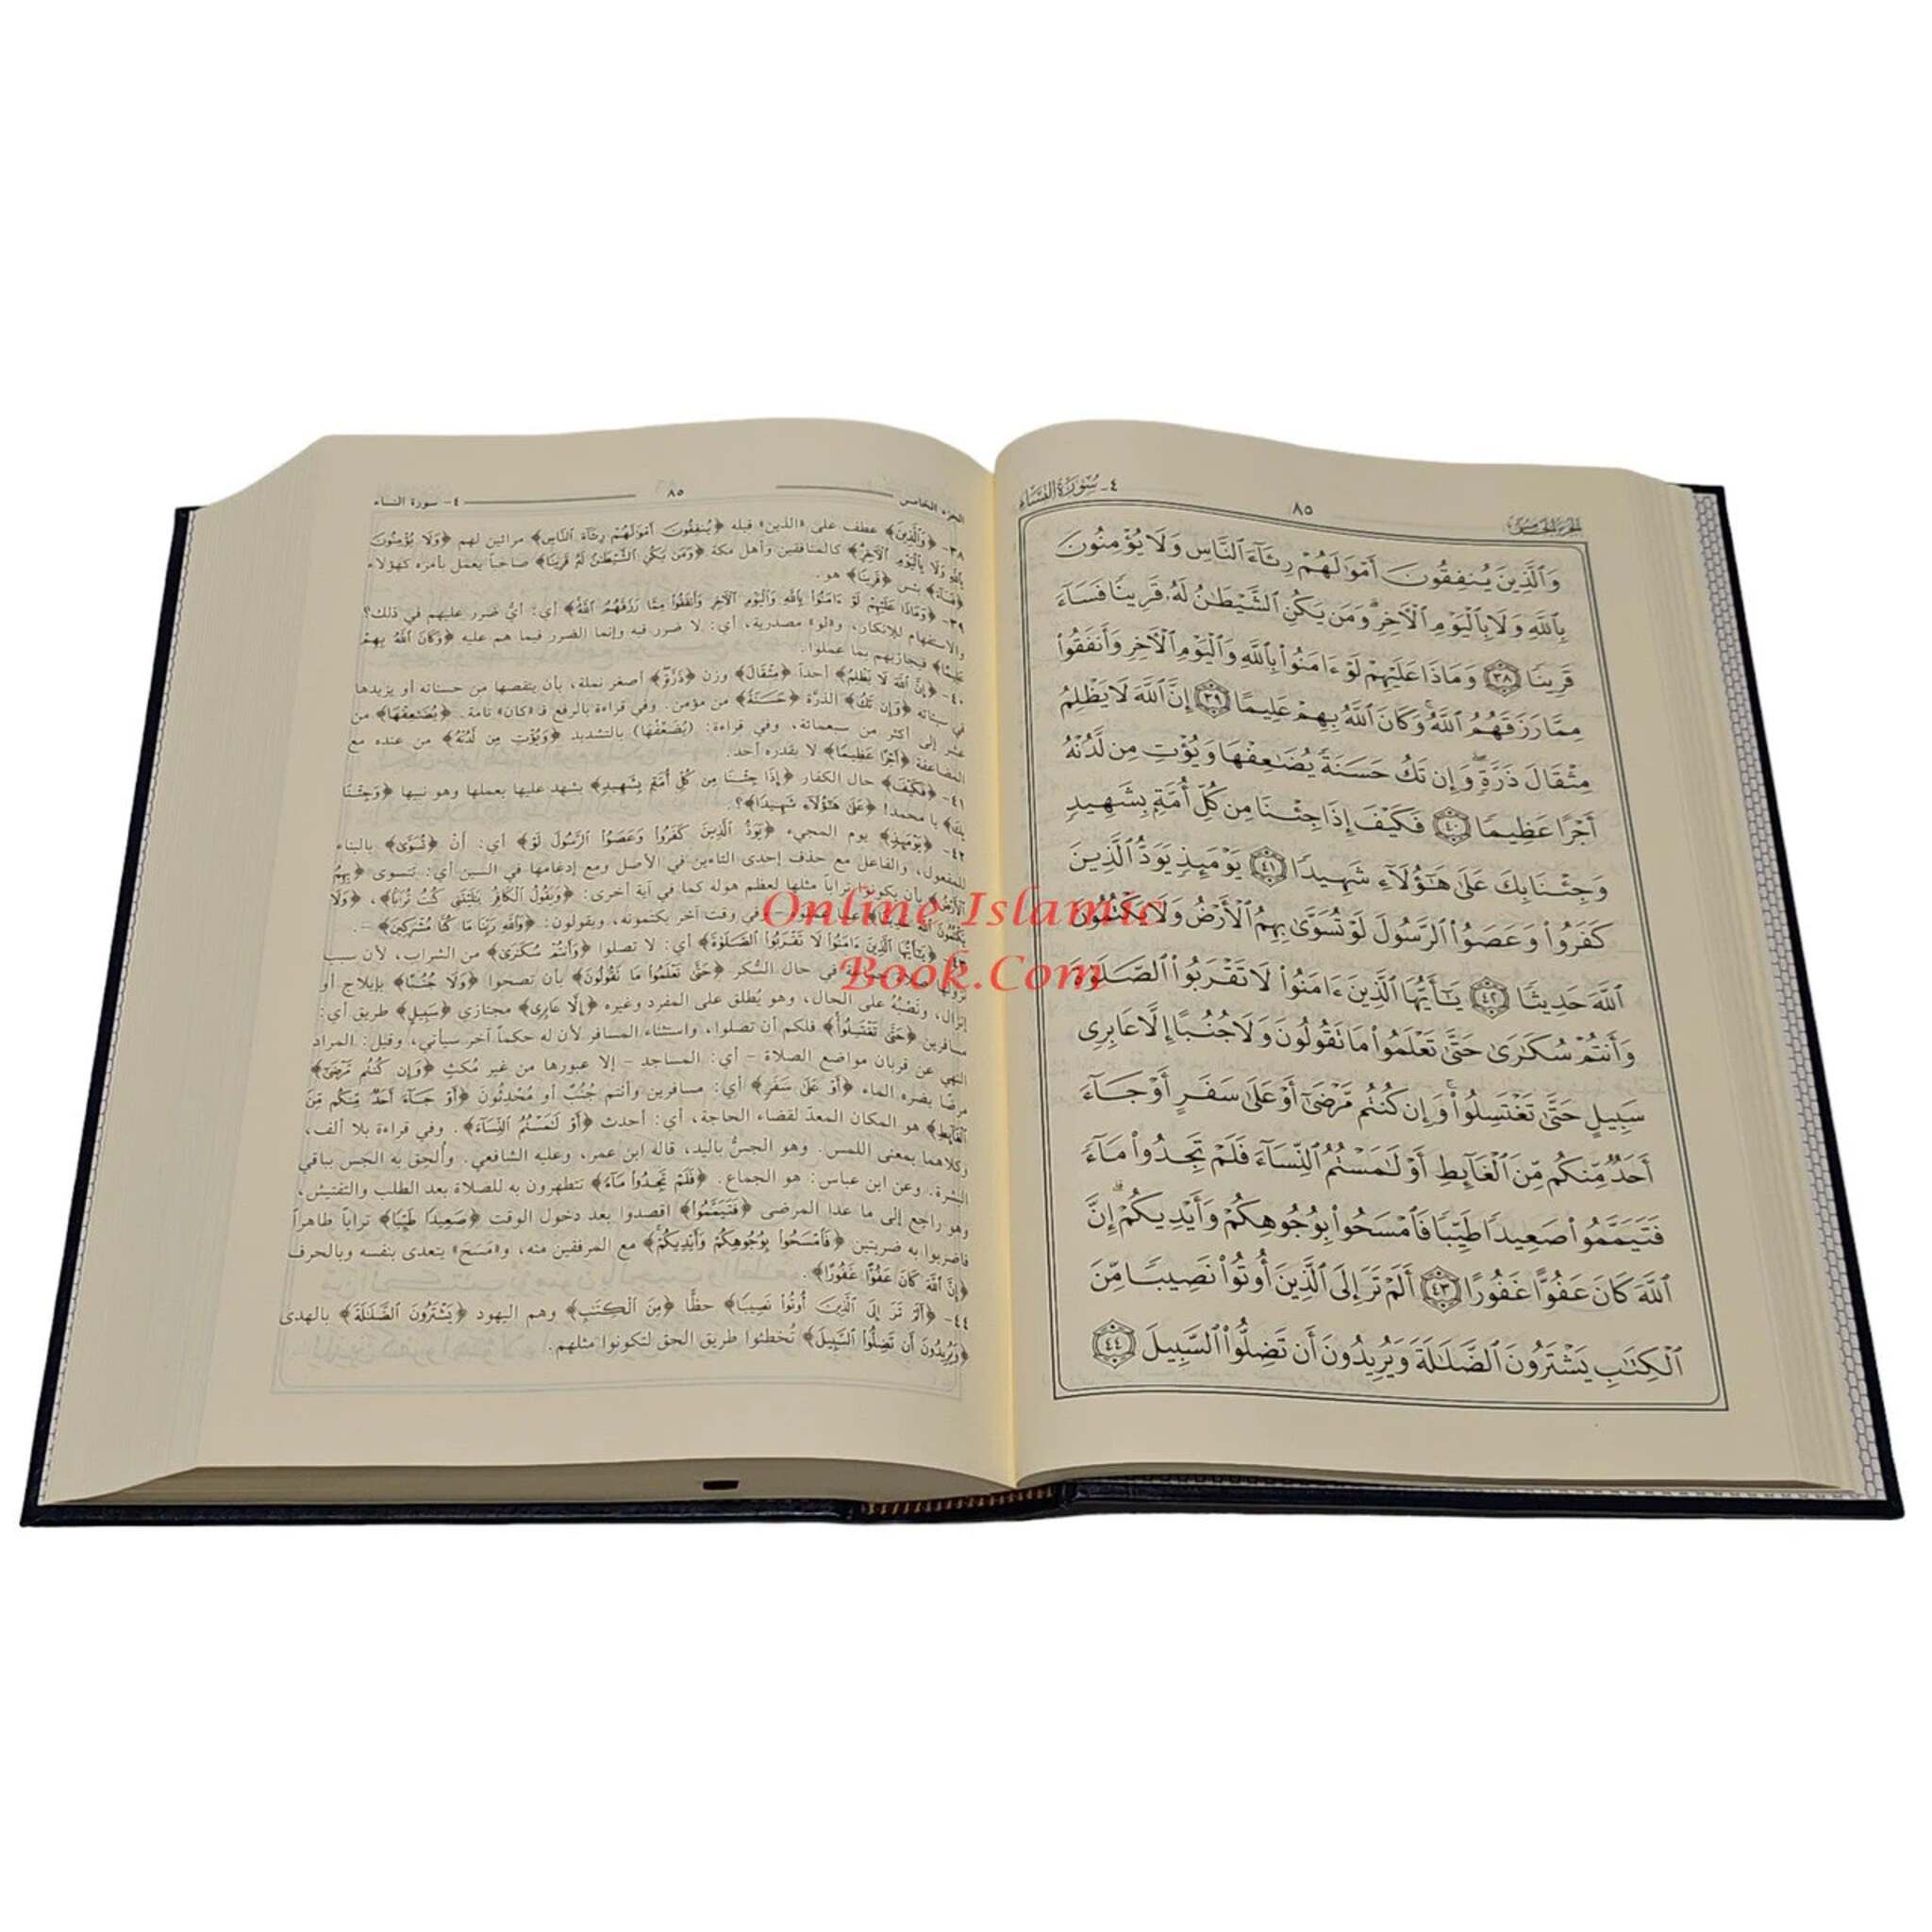 ٤- سورة النساء
٨٥
الجزء الخامس
وَٱلَّذِينَ يُنفِقُونَ أَمۡوَٰلَهُمۡ رِئَآءَ ٱلنَّاسِ وَلَا يُؤۡمِنُونَ
بِٱللَّهِ وَلَا بِٱلۡيَوۡمِ ٱلۡأٓخِرِۗ وَمَن يَكُنِ ٱلشَّيۡطَٰنُ لَهُۥ قَرِينٗا فَسَآءَ
قَرِينٗا ٣٨ وَمَاذَا عَلَيۡهِمۡ لَوۡ ءَامَنُواْ بِٱللَّهِ وَٱلۡيَوۡمِ ٱلۡأٓخِرِ وَأَنفَقُواْ
مِمَّا رَزَقَهُمُ ٱللَّهُۚ وَكَانَ ٱللَّهُ بِهِمۡ عَلِيمًا ٣٩ إِنَّ ٱللَّهَ لَا يَظۡلِمُ
مِثۡقَالَ ذَرَّةٖۖ وَإِن تَكُ حَسَنَةٗ يُضَٰعِفۡهَا وَيُؤۡتِ مِن لَّدُنۡهُ
أَجۡرًا عَظِيمٗا ٤٠ فَكَيۡفَ إِذَا جِئۡنَا مِن كُلِّ أُمَّةِۭ بِشَهِيدٖ
وَجِئۡنَا بِكَ عَلَىٰ هَٰٓؤُلَآءِ شَهِيدٗا ٤١ يَوۡمَئِذٖ يَوَدُّ ٱلَّذِينَ
كَفَرُواْ وَعَصَوُاْ ٱلرَّسُولَ لَوۡ تُسَوَّىٰ بِهِمُ ٱلۡأَرۡضُ وَلَا يَكۡتُمُونَ
ٱللَّهَ حَدِيثٗا ٤٢ يَٰٓأَيُّهَا ٱلَّذِينَ ءَامَنُواْ لَا تَقۡرَبُواْ ٱلصَّلَوٰةَ
وَأَنتُمۡ سُكَٰرَىٰ حَتَّىٰ تَعۡلَمُواْ مَا تَقُولُونَ وَلَا جُنُبًا إِلَّا عَابِرِي
سَبِيلٍ حَتَّىٰ تَغۡتَسِلُواْۚ وَإِن كُنتُم مَّرۡضَىٰٓ أَوۡ عَلَىٰ سَفَرٍ أَوۡ جَآءَ
أَحَدٞ مِّنكُم مِّنَ ٱلۡغَآئِطِ أَوۡ لَٰمَسۡتُمُ ٱلنِّسَآءَ فَلَمۡ تَجِدُواْ مَآءٗ
فَتَيَمَّمُواْ صَعِيدٗا طَيِّبٗا فَٱمۡسَحُواْ بِوُجُوهِكُمۡ وَأَيۡدِيكُمۡۗ إِنَّ
ٱللَّهَ كَانَ عَفُوًّا غَفُورًا ٤٣ أَلَمۡ تَرَ إِلَى ٱلَّذِينَ أُوتُواْ نَصِيبٗا مِّنَ
ٱلۡكِتَٰبِ يَشۡتَرُونَ ٱلضَّلَٰلَةَ وَيُرِيدُونَ أَن تَضِلُّواْ ٱلسَّبِيلَ ٤٤
الجزء الخامس
٨٥
٤- سورة النساء
٣٨- ﴿وَٱلَّذِينَ﴾ عطف على «الذين» قبله ﴿يُنفِقُونَ أَمۡوَٰلَهُمۡ رِئَآءَ ٱلنَّاسِ﴾ مرائين لهم ﴿وَلَا يُؤۡمِنُونَ
بِٱللَّهِ وَلَا بِٱلۡيَوۡمِ ٱلۡأٓخِرِ﴾ كالمنافقين وأهل مكة ﴿وَمَن يَكُنِ ٱلشَّيۡطَٰنُ لَهُۥ قَرِينٗا﴾ صاحباً يعمل بأمره كهؤلاء
﴿فَسَآءَ﴾ بئس ﴿قَرِينٗا﴾ هو.
٣٩- ﴿وَمَاذَا عَلَيۡهِمۡ لَوۡ ءَامَنُواْ بِٱللَّهِ وَٱلۡيَوۡمِ ٱلۡأٓخِرِ وَأَنفَقُواْ مِمَّا رَزَقَهُمُ ٱللَّهُ﴾ أي: أيُّ ضرر عليهم في ذلك؟
والاستفهام للإنكار، و«لو» مصدرية، أي: لا ضرر فيه وإنما الضرر فيما هم عليه ﴿وَكَانَ ٱللَّهُ بِهِمۡ
عَلِيمًا﴾ فيجازيهم بما عملوا.
٤٠- ﴿إِنَّ ٱللَّهَ لَا يَظۡلِمُ﴾ أحداً ﴿مِثۡقَالَ﴾ وزن ﴿ذَرَّةٖ﴾ أصغر نملة، بأن ينقصها من حسناته أو يزيدها
في سيئاته ﴿وَإِن تَكُ﴾ الذرَّة ﴿حَسَنَةٗ﴾ من مؤمن. وفي قراءة بالرفع فـ«كان» تامة. ﴿يُضَٰعِفۡهَا﴾ من
عشر إلى أكثر من سبعمائة، وفي قراءة: (يُضَعِّفْهَا) بالتشديد ﴿وَيُؤۡتِ مِن لَّدُنۡهُ﴾ من عنده مع
المضاعفة ﴿أَجۡرًا عَظِيمٗا﴾ لا يقدره أحد.
٤١- ﴿فَكَيۡفَ﴾ حال الكفار ﴿إِذَا جِئۡنَا مِن كُلِّ أُمَّةِۭ بِشَهِيدٖ﴾ يشهد عليها بعملها وهو نبيها ﴿وَجِئۡنَا
بِكَ﴾ يا محمد! ﴿عَلَىٰ هَٰٓؤُلَآءِ شَهِيدٗا﴾؟.
٤٢- ﴿يَوۡمَئِذٖ﴾ يوم المجيء ﴿يَوَدُّ ٱلَّذِينَ كَفَرُواْ وَعَصَوُاْ ٱلرَّسُولَ لَوۡ﴾ أي: أنْ ﴿تُسَوَّىٰ﴾ بالبناء
للمفعول، والفاعل مع حذف إحدى التاءين في الأصل ومع إدغامها في السين أي: تتسوى ﴿بِهِمُ
ٱلۡأَرۡضُ﴾ بأن يكونوا تراباً مثلها لعظم هوله كما في آية أخرى: ﴿وَيَقُولُ ٱلۡكَافِرُ يَٰلَيۡتَنِي كُنتُ تُرَٰبَۢا﴾، ﴿وَلَا
يَكۡتُمُونَ ٱللَّهَ حَدِيثٗا﴾ عما عملوه – وفي وقت آخر يكتمونه، ويقولون: ﴿وَٱللَّهِ رَبِّنَا مَا كُنَّا مُشۡرِكِينَ﴾ –.
٤٣- ﴿يَٰٓأَيُّهَا ٱلَّذِينَ ءَامَنُواْ لَا تَقۡرَبُواْ ٱلصَّلَوٰةَ﴾ أي: لا تصلوا ﴿وَأَنتُمۡ سُكَٰرَىٰ﴾ من الشراب، لأن سبب
نزولها صلاة جماعة في حال السُّكر ﴿حَتَّىٰ تَعۡلَمُواْ مَا تَقُولُونَ﴾ بأن تصحوا ﴿وَلَا جُنُبًا﴾ بإيلاج أو
إنزال، ونَصْبُهُ على الحال، وهو يُطلق على المفرد وغيره ﴿إِلَّا عَابِرِي﴾ مجتازي ﴿سَبِيلٍ﴾ طريق أي:
مسافرين ﴿حَتَّىٰ تَغۡتَسِلُواْ﴾ فلكم أن تصلوا، واستثناء المسافر لأن له حكماً آخر سيأتي، وقيل: المراد
النهي عن قربان مواضع الصلاة – أي: المساجد – إلا عبورها من غير مُكثٍ ﴿وَإِن كُنتُم مَّرۡضَىٰٓ﴾
مرضًا يضره الماء ﴿أَوۡ عَلَىٰ سَفَرٍ﴾ أي: مسافرين وأنتم جُنُبٌ أو مُحْدِثُونَ ﴿أَوۡ جَآءَ أَحَدٞ مِّنكُم مِّنَ
ٱلۡغَآئِطِ﴾ هو المكان المعدّ لقضاء الحاجة، أي: أحدث ﴿أَوۡ لَٰمَسۡتُمُ ٱلنِّسَآءَ﴾. وفي قراءة بلا ألف،
وكلاهما بمعنى اللمس. وهو الجسُّ باليد، قاله ابن عمر، وعليه الشافعي. وأُلحق به الجَس بباقي
البشرة. وعن ابن عباس: هو الجماع. ﴿فَلَمۡ تَجِدُواْ مَآءٗ﴾ تتطهرون به للصلاة بعد الطلب والتفتيش،
وهو راجع إلى ما عدا المرضى ﴿فَتَيَمَّمُواْ﴾ اقصدوا بعد دخول الوقت ﴿صَعِيدٗا طَيِّبٗا﴾ تراباً طاهراً
فاضربوا به ضربتين ﴿فَٱمۡسَحُواْ بِوُجُوهِكُمۡ وَأَيۡدِيكُمۡ﴾ مع المرفقين منه، و«مَسَحَ» يتعدى بنفسه وبالحرف
﴿إِنَّ ٱللَّهَ كَانَ عَفُوًّا غَفُورًا﴾.
٤٤- ﴿أَلَمۡ تَرَ إِلَى ٱلَّذِينَ أُوتُواْ نَصِيبٗا﴾ حظًّا ﴿مِّنَ ٱلۡكِتَٰبِ﴾ وهم اليهود ﴿يَشۡتَرُونَ ٱلضَّلَٰلَةَ﴾ بالهدى
﴿وَيُرِيدُونَ أَن تَضِلُّواْ ٱلسَّبِيلَ﴾ تُخطئوا طريق الحق لتكونوا مثلهم.
Online Islamic
Book.Com